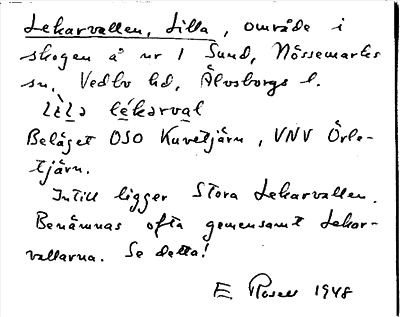 Lekarvallen, Lilla, område i
skogen å nr 1 Sund, Nössemarks
sn, Vedbo hd, Älvsborgs l.
lìla lékarval
Beläget OSO Kuvetjärn, VNV Örle-
tjärn.
Intill ligger Stora Lekarvallen.
Benämnas ofta gemensamt Lekar-
vallarna. Se detta!
E Rosell 1948